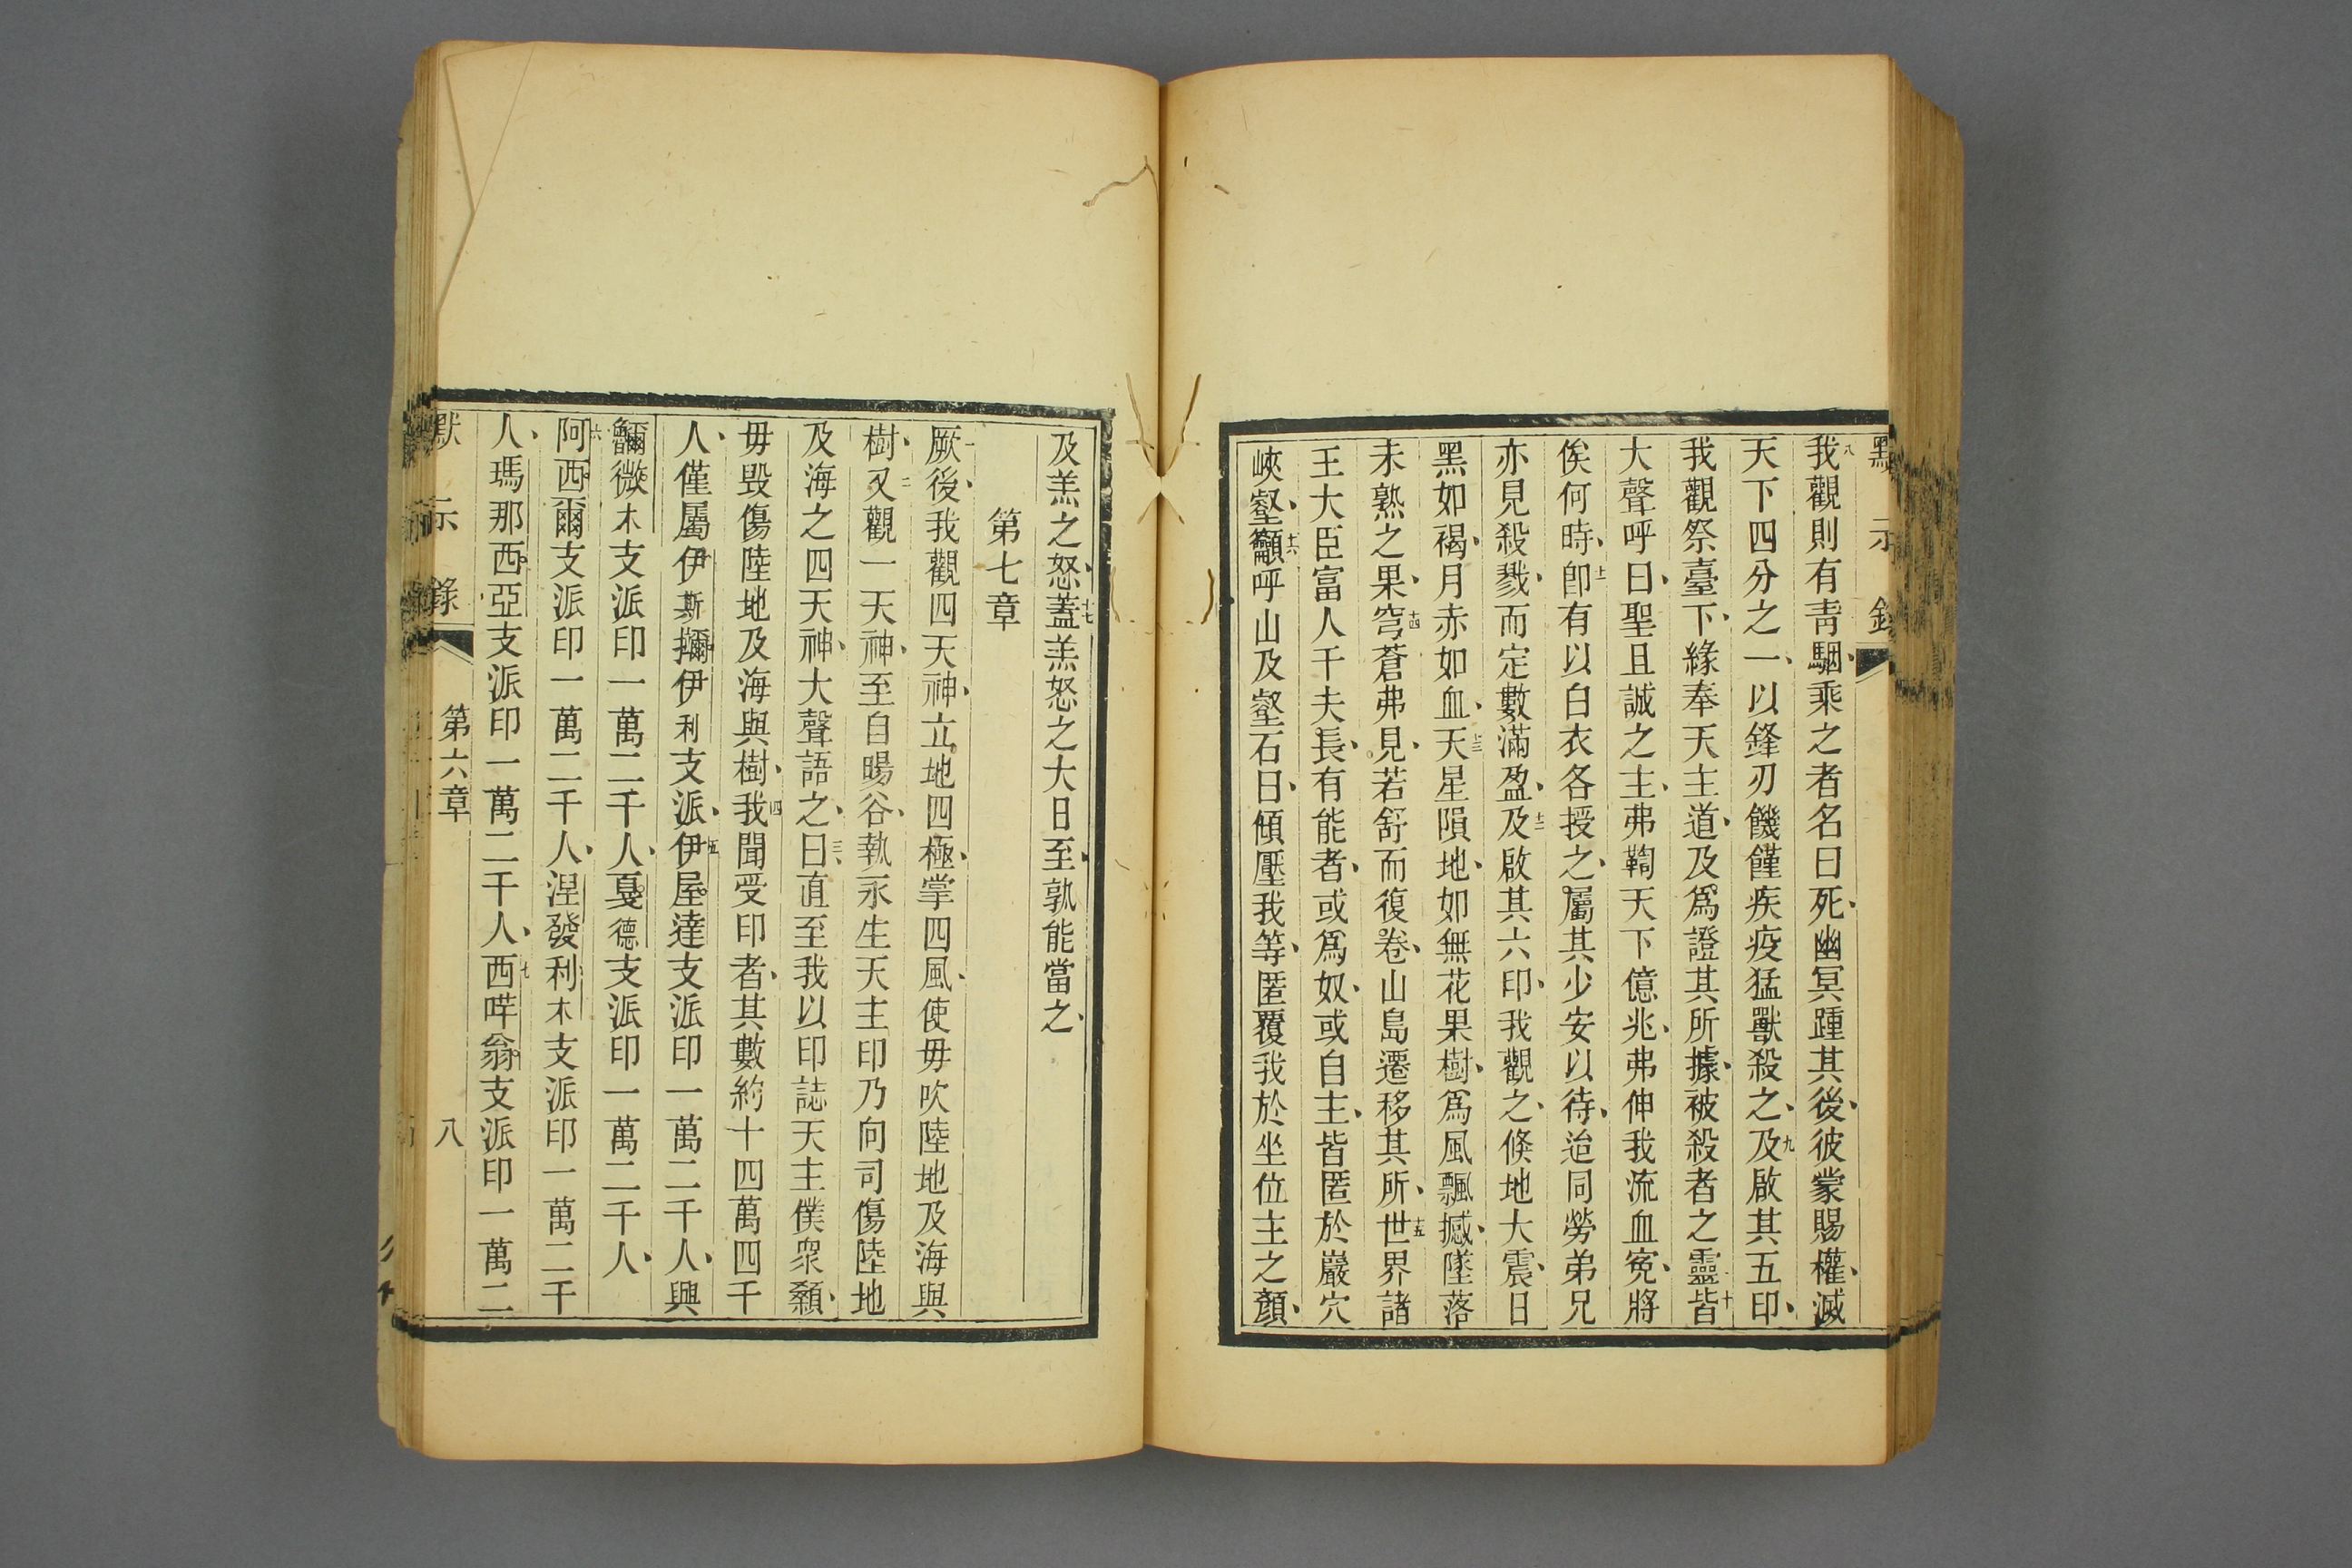 默示錄
八我觀則有靑駰、乘之者名曰死、幽冥踵其後、彼蒙賜權、滅
天下四分之一、以鋒刃饑饉疾疫猛獸殺之、九及啟其五印、
我觀祭臺下、緣奉天主道、及爲證其所據、被殺者之靈、十皆
大聲呼曰、聖且誠之主、弗鞫天下億兆、弗伸我流血寃、將
俟何時、十一卽有以白衣各授之、屬其少安以待、迨同勞弟兄
亦見殺戮、而定數滿盈、十二及啟其六印、我觀之、倏地大震、日
黑如褐、月赤如血、十三天星隕地、如無花果樹、爲風飄撼、墜落
未熟之果、十四穹蒼弗見、若舒而復卷、山島遷移其所、十五世界諸
王大臣富人千夫長、有能者、或爲奴、或自主、皆匿於巖穴
峽壑、十六籲呼山及壑石曰、傾壓我等、匿覆我於坐位主之顏、
及羔之怒、十七蓋羔怒之大日至、孰能當之、
第七章
一厥後、我觀四天神、立地四極、掌四風、使毋吹陸地及海與
樹、二又觀一天神、至自暘谷、執永生天主印乃向司傷陸地
及海之四天神、大聲語之、三曰、直至我以印誌天主僕衆顙、
毋毀傷陸地及海與樹、四我聞受印者、其數約十四萬四千
人、僅屬伊斯擖伊利支派、五伊屋達支派印一萬二千人、興
微木支派印一萬二千人、戛德支派印一萬二千人、
六阿西爾支派印一萬二千人、涅發利木支派印一萬二千
人、瑪那西亞支派印一萬二千人、七西哶翁支派印一萬二
默示錄 第六章 八